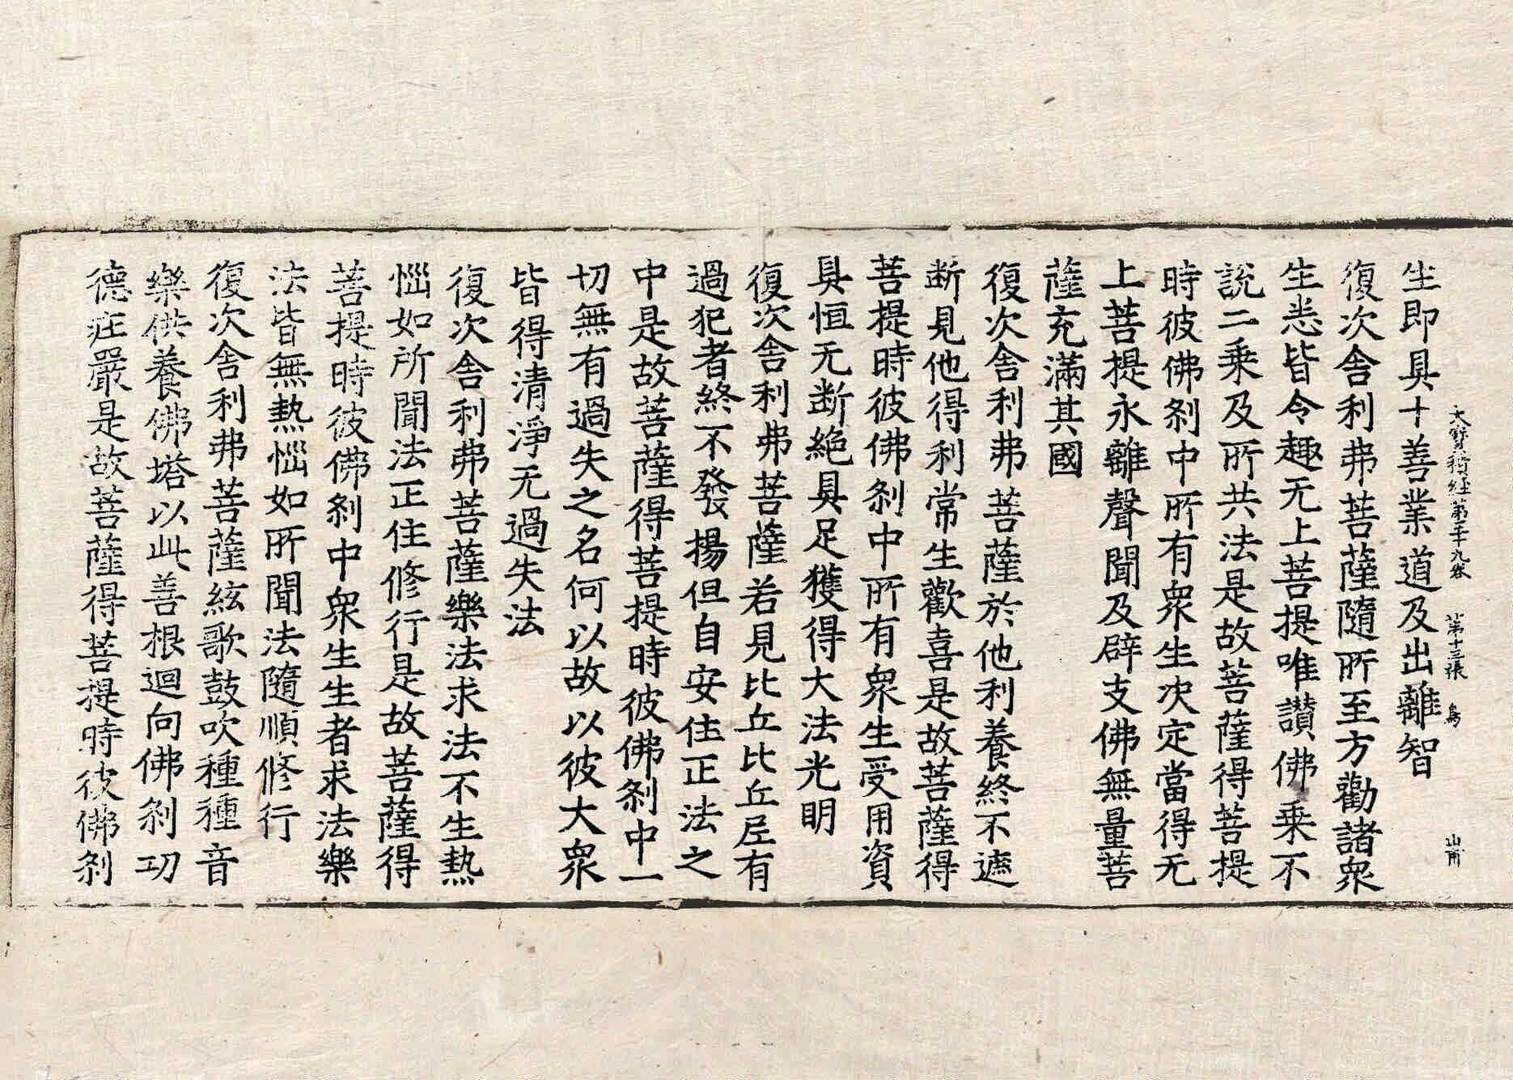 大寶積經第五十九卷　第十三張　鳥
生即具十善業道及出離智
復次舍利弗菩薩隨所至方勸諸衆
生悉皆令趣无上菩提唯讚佛乗不
說二乗及所共法是故菩薩得菩提
時彼佛刹中所有衆生决定當得无
上菩提永離聲聞及辟支佛無量菩
薩充滿其國
復次舍利弗菩薩於他利養終不遮
断見他得利常生歡喜是故菩薩得
菩提時彼佛刹中所有衆生受用資
具恒无断絶具足獲得大法光明
復次舍利弗菩薩若見比丘比丘尼有
過犯者終不發揚但自安住正法之
中是故菩薩得菩提時彼佛刹中一
切無有過失之名何以故以彼大衆
皆得清淨无過失法
復次舍利弗菩薩樂法求法不生熱
惱如所聞法正住修行是故菩薩得
菩提時彼佛刹中衆生生者求法樂
法皆無熱惱如所聞法隨順修行
復次舍利弗菩薩絃歌鼓吹種種音
樂供養佛塔以此善根迴向佛刹功
德莊嚴是故菩薩得菩提時彼佛刹